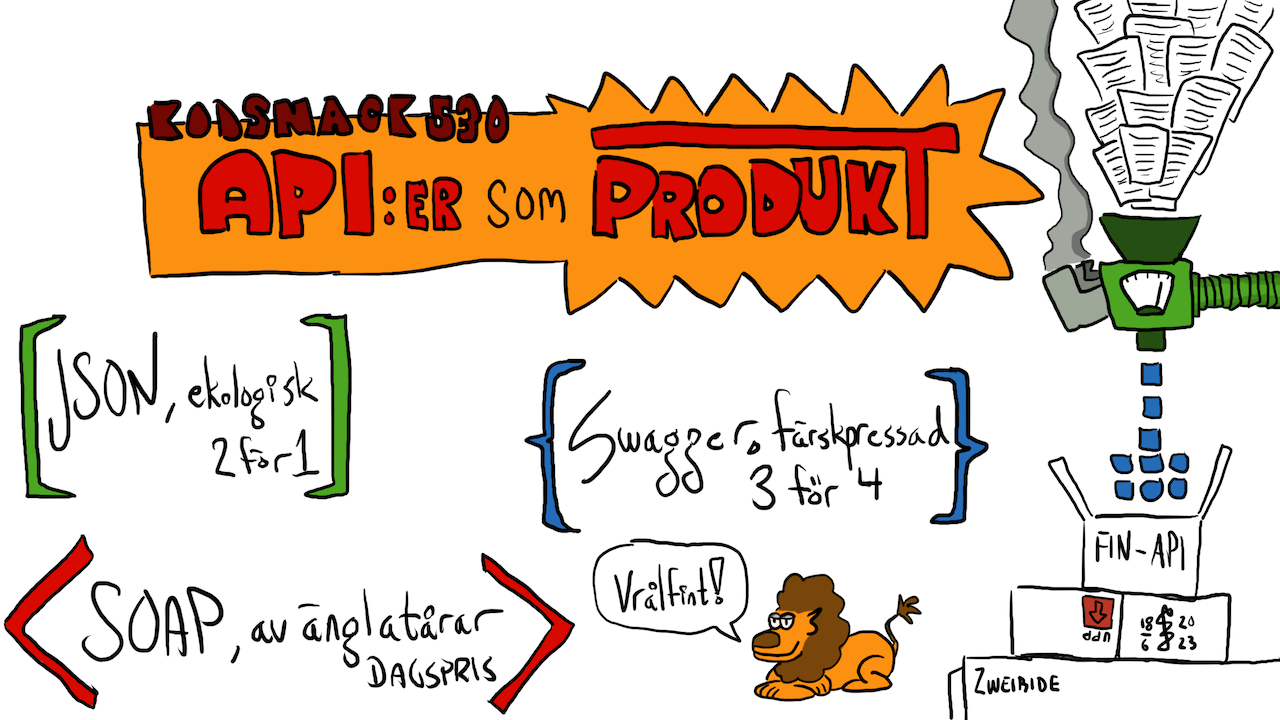 KODSNACK 530
API:ER SOM PRODUKT
[JSON, ekologisk
2 för 1]
{Swagger, färskpressad
3 för 4}
<SOAP, av änglatårar
DAGSPRIS>
Vrålfint!
FIN-API
18 20
6 23
ZWEIRIDE